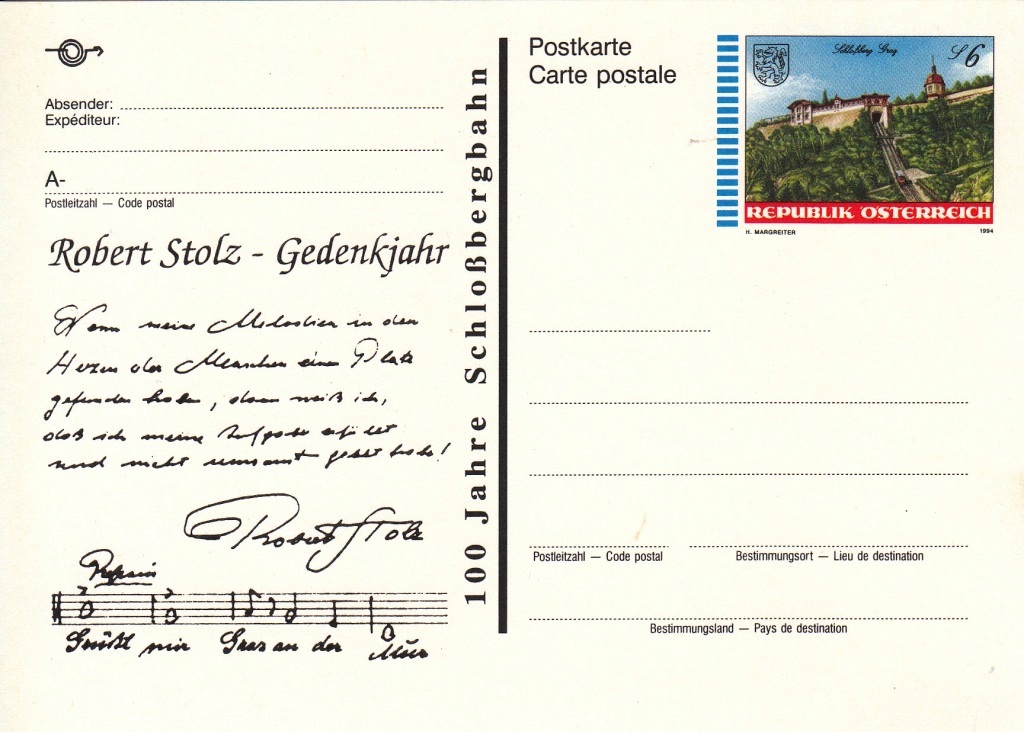 Absender:
Expéditeur:
A-
Postleitzahl — Code postal
Robert Stolz - Gedenkjahr
Wenn meine Melodien in den
Herzen der Menschen einen Platz
gefunden haben, dann weiß ich,
daß ich meine Aufgabe erfüllt
und nicht umsonst gelebt habe!
Robert Stolz
Refrain
Grüßt mir Graz an der Mur
100 Jahre Schloßbergbahn
Postkarte
Carte postale
Schloßberg Graz
S 6
REPUBLIK ÖSTERREICH
H. MARGREITER 1994
Postleitzahl — Code postal Bestimmungsort — Lieu de destination
Bestimmungsland — Pays de destination